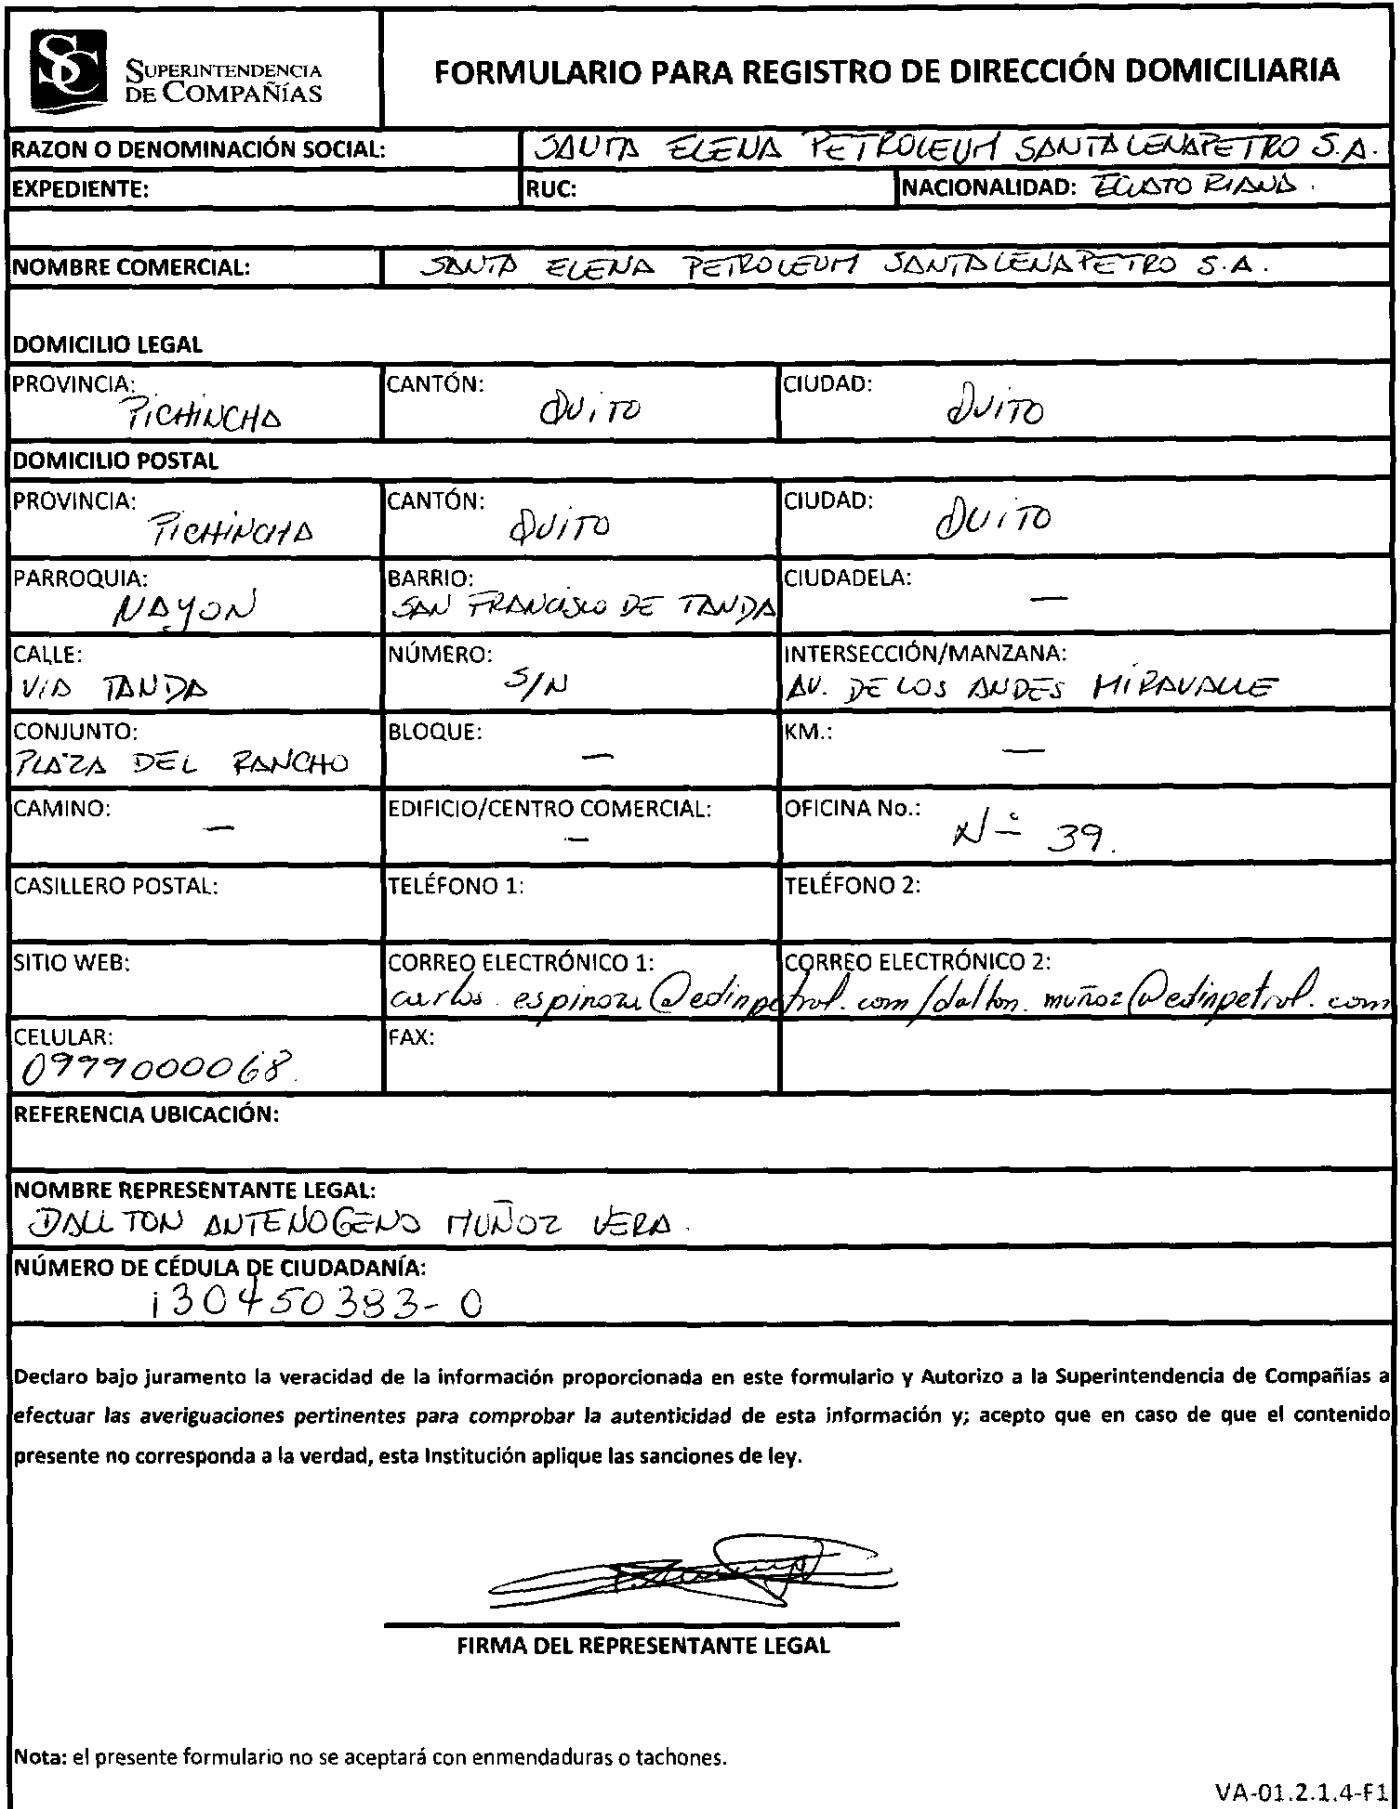 SC SUPERINTENDENCIA
DE COMPAÑÍAS
FORMULARIO PARA REGISTRO DE DIRECCIÓN DOMICILIARIA
RAZON O DENOMINACIÓN SOCIAL: SANTA ELENA PETROLEUM SANTALENAPETRO S.A.
EXPEDIENTE: RUC: NACIONALIDAD: ECUATORIANA.
NOMBRE COMERCIAL: SANTA ELENA PETROLEUM SANTALENAPETRO S.A.
DOMICILIO LEGAL
PROVINCIA: CANTÓN: CIUDAD:
PICHINCHA QUITO QUITO
DOMICILIO POSTAL
PROVINCIA: CANTÓN: CIUDAD:
PICHINCHA QUITO QUITO
PARROQUIA: BARRIO: CIUDADELA:
NAYON SAN FRANCISCO DE TANDA —
CALLE: NÚMERO: INTERSECCIÓN/MANZANA:
VIA TANDA S/N AV. DE LOS ANDES MIRAVALLE
CONJUNTO: BLOQUE: KM.:
PLAZA DEL RANCHO — —
CAMINO: EDIFICIO/CENTRO COMERCIAL: OFICINA No.:
— — Nº 39.
CASILLERO POSTAL: TELÉFONO 1: TELÉFONO 2:
SITIO WEB: CORREO ELECTRÓNICO 1: CORREO ELECTRÓNICO 2:
carlos.espinoza@edinpetrol.com/dalton.muñoz@edinpetrol.com
CELULAR: FAX:
0999000068.
REFERENCIA UBICACIÓN:
NOMBRE REPRESENTANTE LEGAL:
DALLTON ANTENOGENO MUÑOZ VERA.
NÚMERO DE CÉDULA DE CIUDADANÍA:
130450383-0
Declaro bajo juramento la veracidad de la información proporcionada en este formulario y Autorizo a la Superintendencia de Compañías a
efectuar las averiguaciones pertinentes para comprobar la autenticidad de esta información y; acepto que en caso de que el contenido
presente no corresponda a la verdad, esta Institución aplique las sanciones de ley.
FIRMA DEL REPRESENTANTE LEGAL
Nota: el presente formulario no se aceptará con enmendaduras o tachones.
VA-01.2.1.4-F1